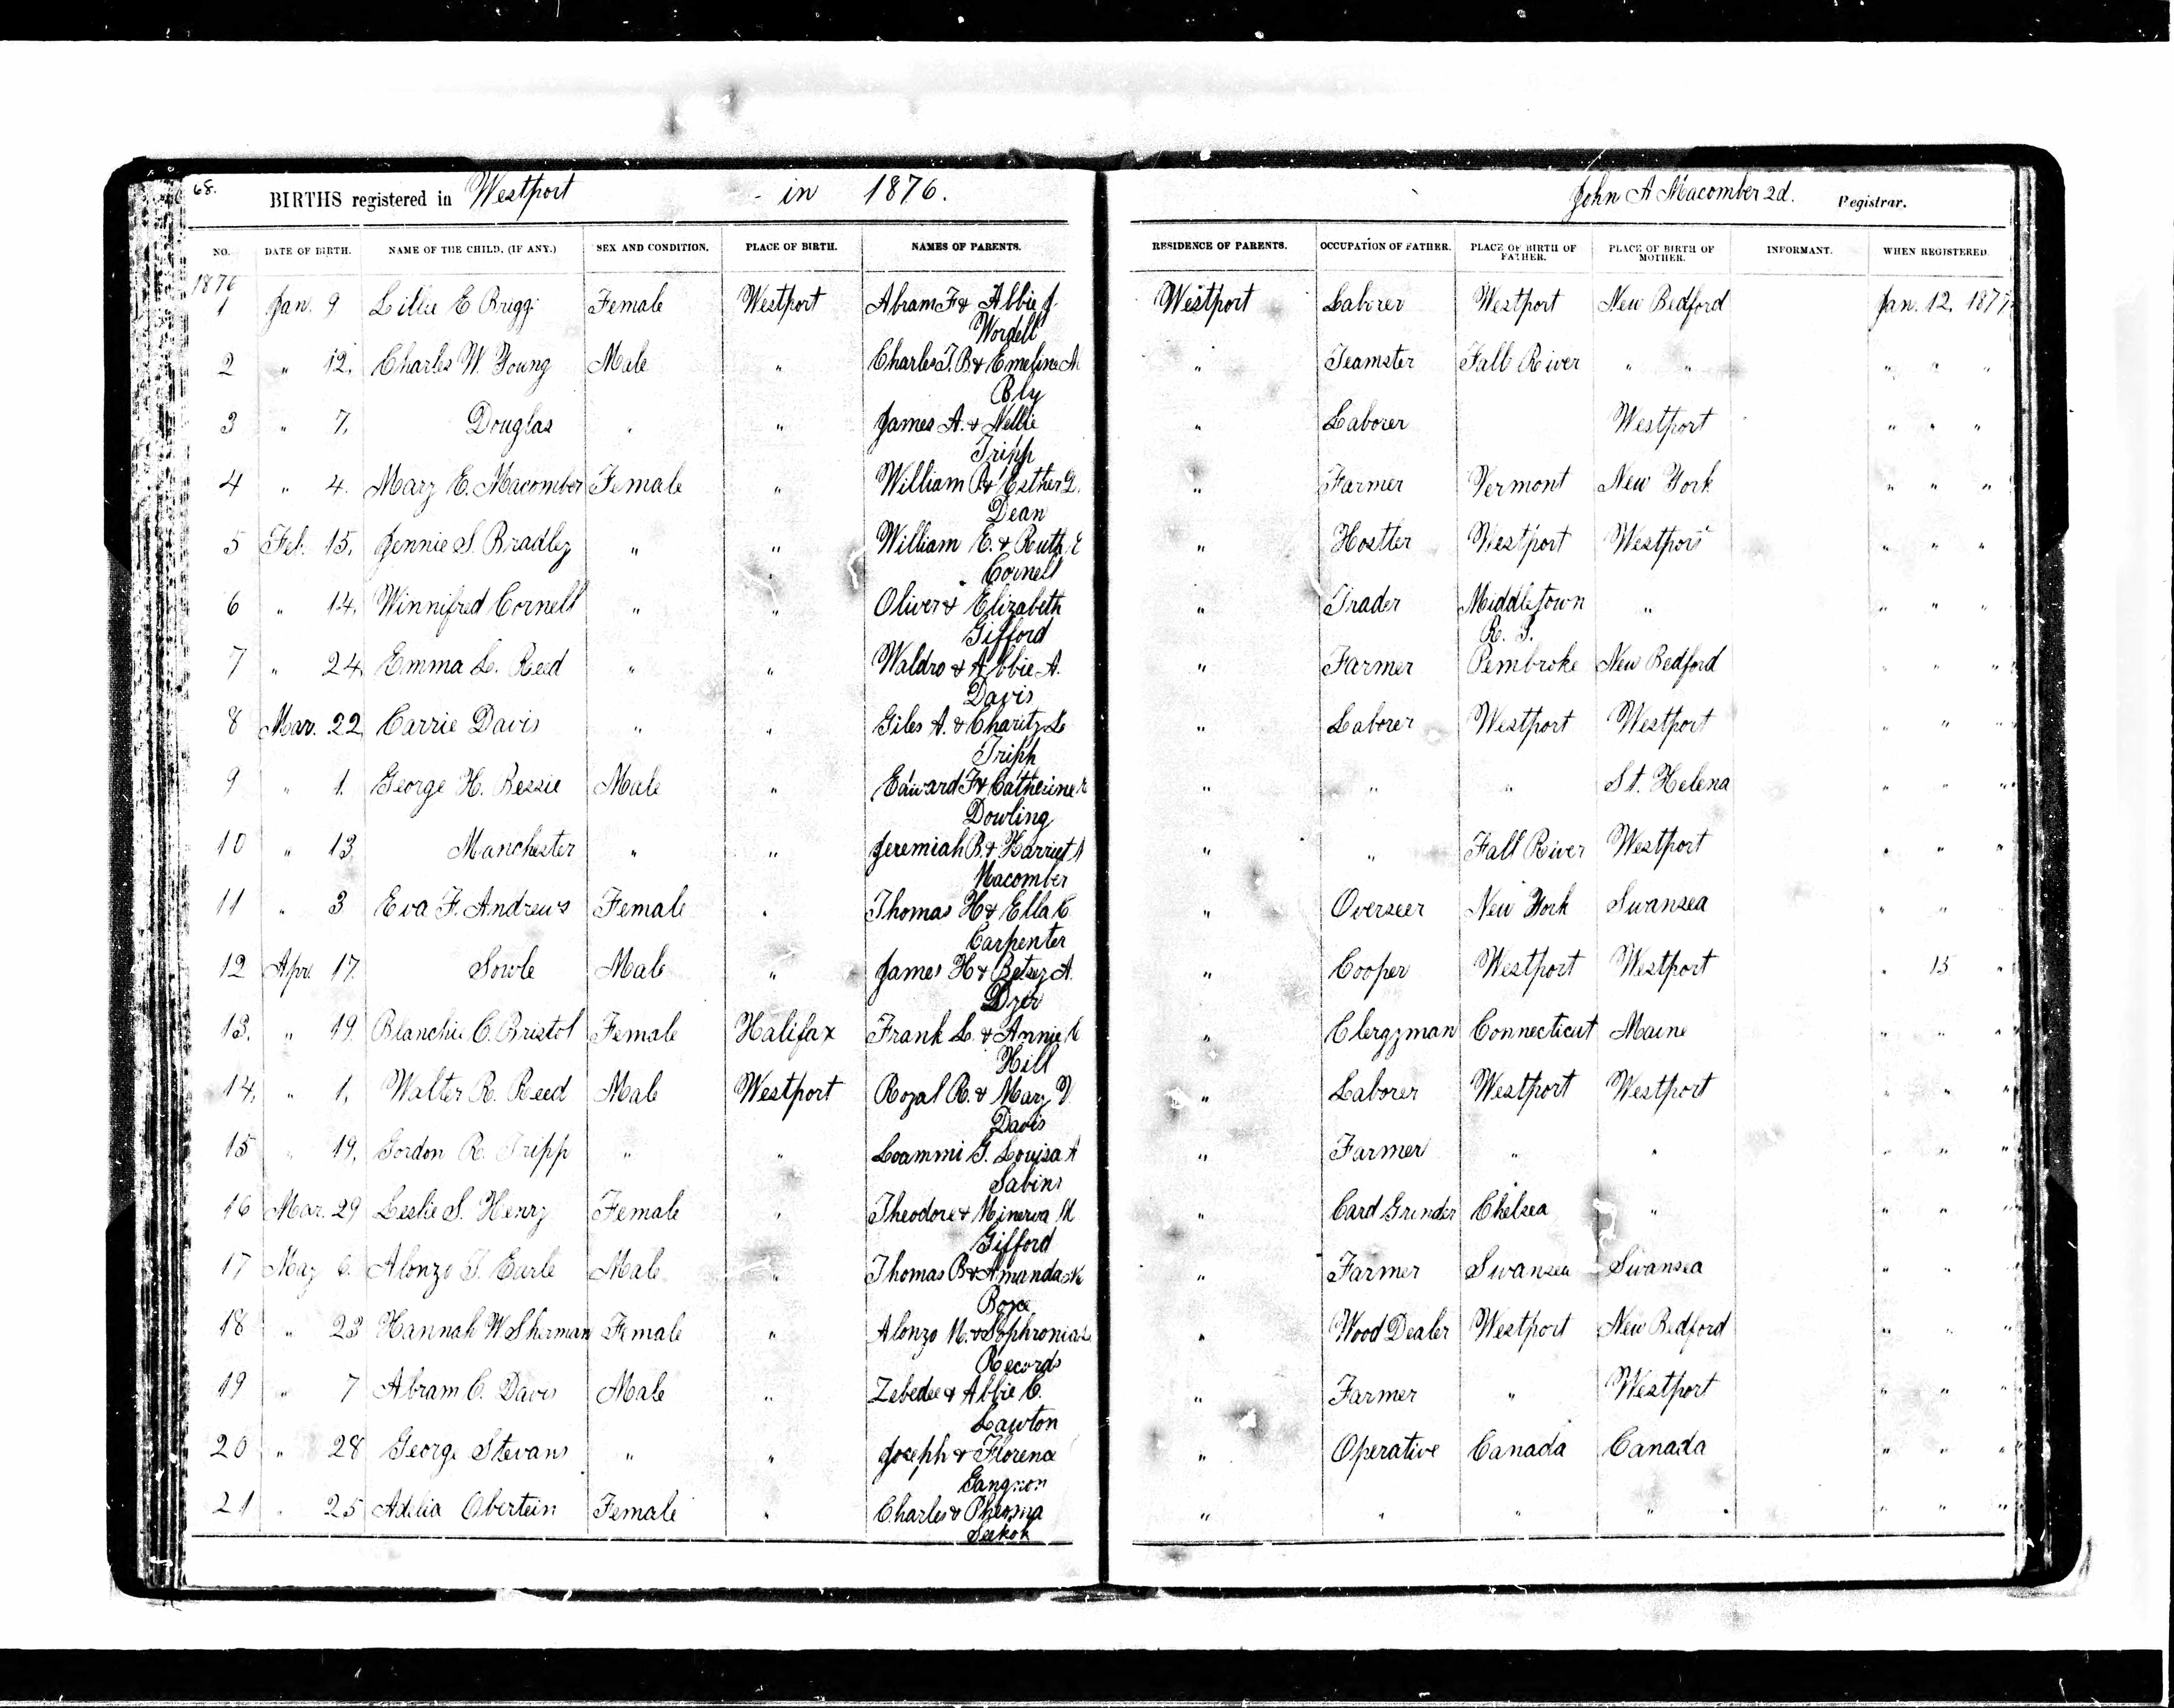 68.
BIRTHS registered in Westport - in 1876. John A Macomber 2d. Registrar.
NO. DATE OF BIRTH. NAME OF THE CHILD, (IF ANY.) SEX AND CONDITION. PLACE OF BIRTH. NAMES OF PARENTS. RESIDENCE OF PARENTS. OCCUPATION OF FATHER. PLACE OF BIRTH OF FATHER. PLACE OF BIRTH OF MOTHER. INFORMANT. WHEN REGISTERED.
1876
1 Jan. 9 Lillie E Briggs Female Westport Abram F & Abbie J. Westport Laborer Westport New Bedford Jan. 12, 1877
Wordell
2 " 12, Charles W. Young Male " Charles T. B. & Emeline A " Teamster Fall River " " " " "
Bly
3 " 7, Douglas " " James A. & Nellie " Laborer Westport " " "
Tripp
4 " 4. Mary E. Macomber Female " William P. & Esther L. " Farmer Vermont New York " " "
Dean
5 Feb. 15, Jennie S. Bradley " " William E. & Ruth E " Hostler Westport Westport " " "
Cornell
6 " 14, Winnifred Cornell " " Oliver & Elizabeth " Trader Middletown " " " "
Gifford R. I.
7 " 24, Emma L. Reed " " Waldro & Abbie A. " Farmer Pembroke New Bedford " " "
Davis
8 Mar. 22, Carrie Davis " " Giles A. & Charity L " Laborer Westport Westport " " "
Tripp
9 " 1. George H. Bessie Male " Edward F & Catherine " " " St. Helena " " "
Dowling
10 " 13 Manchester " " Jeremiah B. & Harriet A " " Fall River Westport " " "
Macomber
11 " 3 Eva F. Andrews Female " Thomas H & Ella C " Overseer New York Swansea " "
Carpenter
12 Apr. 17. Sowle Male " James H & Betsey A. " Cooper Westport Westport " 15 "
Dyer
13. " 19. Blanchie C. Bristol Female Halifax Frank L. & Annie " Clergyman Connecticut Maine " " "
Hill
14, " 1, Walter R. Reed Male Westport Royal R. & Mary V " Laborer Westport Westport " " "
Davis
15 " 19, Gordon R. Tripp " " Loammi G. Louisa A " Farmer " " " " "
Sabins
16 Mar. 29 Leslie S. Henry Female " Theodore & Minerva M " Card Grinder Chelsea " " " "
Gifford
17 May 6. Alonzo T. Earle Male " Thomas B & Amanda " Farmer Swansea Swansea " "
Boyce
18 " 23 Hannah W Sherman Female " Alonzo M. & Sophronia L " Wood Dealer Westport New Bedford " " "
Records
19 " 7 Abram C. Davis Male " Zebedee & Abbie C. " Farmer " Westport " " "
Lawton
20 " 28 George Stevans " " Joseph & Florence " Operative Canada Canada " " "
Gangnon
21 " 25 Adelia Obertein Female " Charles & " " " " " " "